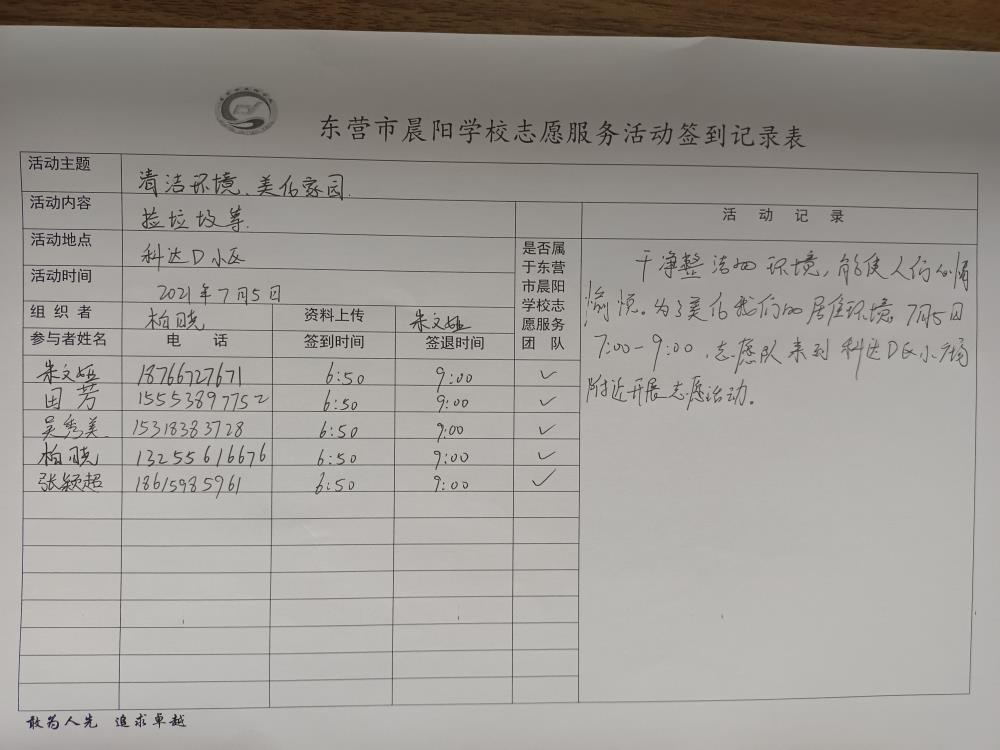 东营市晨阳学校志愿服务活动签到记录表
活动主题 清洁环境、美化家园.
活动内容 捡垃圾等.
活动地点 科达D小区
活动时间 2021年7月5日
组织者 柏晓 资料上传 朱文娅
参与者姓名 电话 签到时间 签退时间
是否属
于东营
市晨阳
学校志
愿服务
团队
朱文娅 18766727671 6:50 9:00 ✓
田芳 15553897752 6:50 9:00 ✓
吴秀美. 15318383728 6:50 9:00 ✓
柏晓 13255616676 6:50 9:00 ✓
张颖超 18615985961 6:50 9:00 ✓
活动记录
干净整洁的环境,能使人们心情
愉悦。为了美化我们的居住环境,7月5日
7:00-9:00,志愿队来到科达D区小广场
附近开展志愿活动。
敢为人先 追求卓越